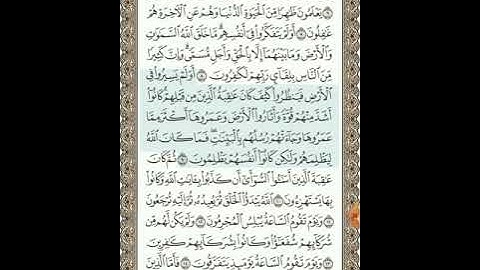 يَعْلَمُونَ ظَٰهِرًا مِّنَ ٱلْحَيَوٰةِ ٱلدُّنْيَا وَهُمْ عَنِ ٱلْءَاخِرَةِ هُمْ
غَٰفِلُونَ ٧ أَوَلَمْ يَتَفَكَّرُوا۟ فِىٓ أَنفُسِهِم مَّا خَلَقَ ٱللَّهُ ٱلسَّمَٰوَٰتِ
وَٱلْأَرْضَ وَمَا بَيْنَهُمَآ إِلَّا بِٱلْحَقِّ وَأَجَلٍ مُّسَمًّى وَإِنَّ كَثِيرًا
مِّنَ ٱلنَّاسِ بِلِقَآئِ رَبِّهِمْ لَكَٰفِرُونَ ٨ أَوَلَمْ يَسِيرُوا۟ فِى
ٱلْأَرْضِ فَيَنظُرُوا۟ كَيْفَ كَانَ عَٰقِبَةُ ٱلَّذِينَ مِن قَبْلِهِمْ كَانُوٓا۟
أَشَدَّ مِنْهُمْ قُوَّةً وَأَثَارُوا۟ ٱلْأَرْضَ وَعَمَرُوهَآ أَكْثَرَ مِمَّا
عَمَرُوهَا وَجَآءَتْهُمْ رُسُلُهُم بِٱلْبَيِّنَٰتِ فَمَا كَانَ ٱللَّهُ
لِيَظْلِمَهُمْ وَلَٰكِن كَانُوٓا۟ أَنفُسَهُمْ يَظْلِمُونَ ٩ ثُمَّ كَانَ
عَٰقِبَةَ ٱلَّذِينَ أَسَٰٓـُٔوا۟ ٱلسُّوٓأَىٰٓ أَن كَذَّبُوا۟ بِـَٔايَٰتِ ٱللَّهِ وَكَانُوا۟
بِهَا يَسْتَهْزِءُونَ ١٠ ٱللَّهُ يَبْدَؤُا۟ ٱلْخَلْقَ ثُمَّ يُعِيدُهُۥ ثُمَّ إِلَيْهِ تُرْجَعُونَ
١١ وَيَوْمَ تَقُومُ ٱلسَّاعَةُ يُبْلِسُ ٱلْمُجْرِمُونَ ١٢ وَلَمْ يَكُن لَّهُم مِّن
شُرَكَآئِهِمْ شُفَعَٰٓؤُا۟ وَكَانُوا۟ بِشُرَكَآئِهِمْ كَٰفِرِينَ
١٣ وَيَوْمَ تَقُومُ ٱلسَّاعَةُ يَوْمَئِذٍ يَتَفَرَّقُونَ ١٤ فَأَمَّا ٱلَّذِينَ